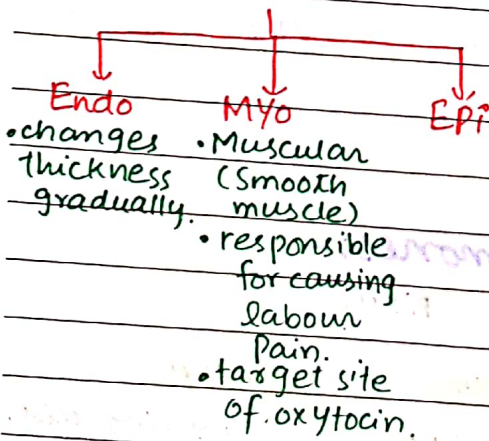 Endo
MYo
EPi
•changes
thickness
gradually.
•Muscular
(Smooth
muscle)
•responsible
for causing
labour
Pain.
•target site
of oxytocin.